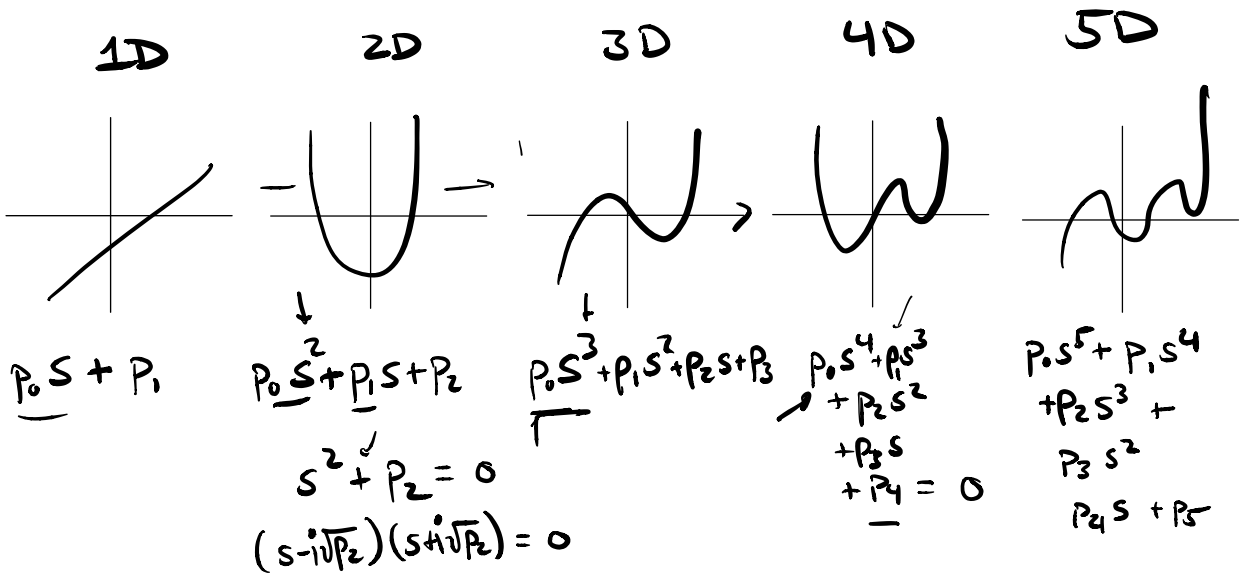 1D
2D
3D
4D
5D
p₀s + p₁
p₀s² + p₁s + p₂
s² + p₂ = 0
(s-i√p₂)(s+i√p₂) = 0
p₀s³ + p₁s² + p₂s + p₃
p₀s⁴ + p₁s³
+ p₂s²
+ p₃s
+ p₄ = 0
p₀s⁵ + p₁s⁴
+ p₂s³ +
p₃s²
p₄s + p₅